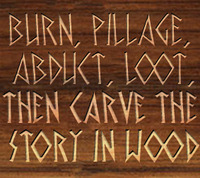 BURN, PILLAGE,
ABDUCT, LOOT,
THEN CARVE THE
STORY IN WOOD